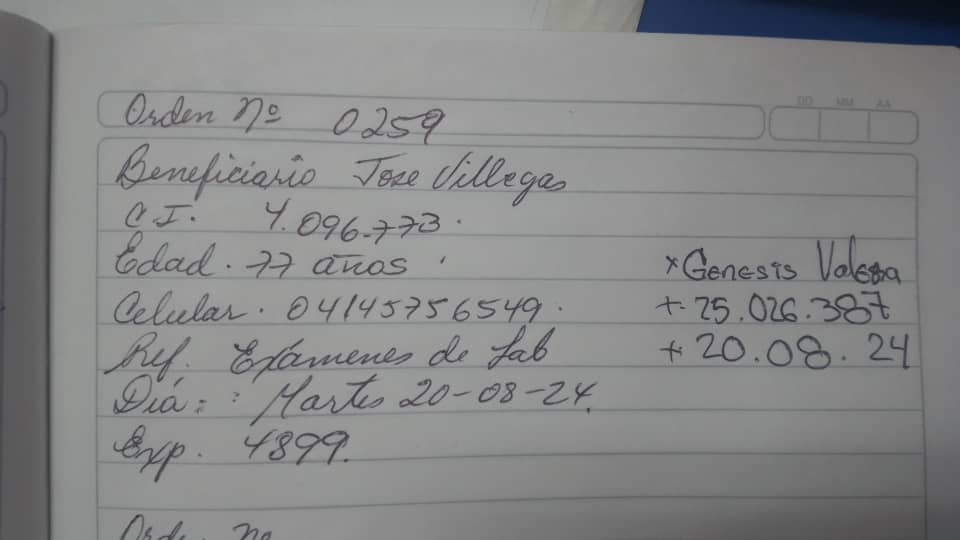 DD MM AA
Orden Nº 0259
Beneficiario Jose Villegas
C.I. 4.096.773.
Edad. 77 años.
Celular. 04145756549.
Ref. Exámenes de Lab
Día: : Martes 20-08-24.
Exp. 4899.
x Genesis Valera
+. 25.026.387
+ 20.08.24
Orden No